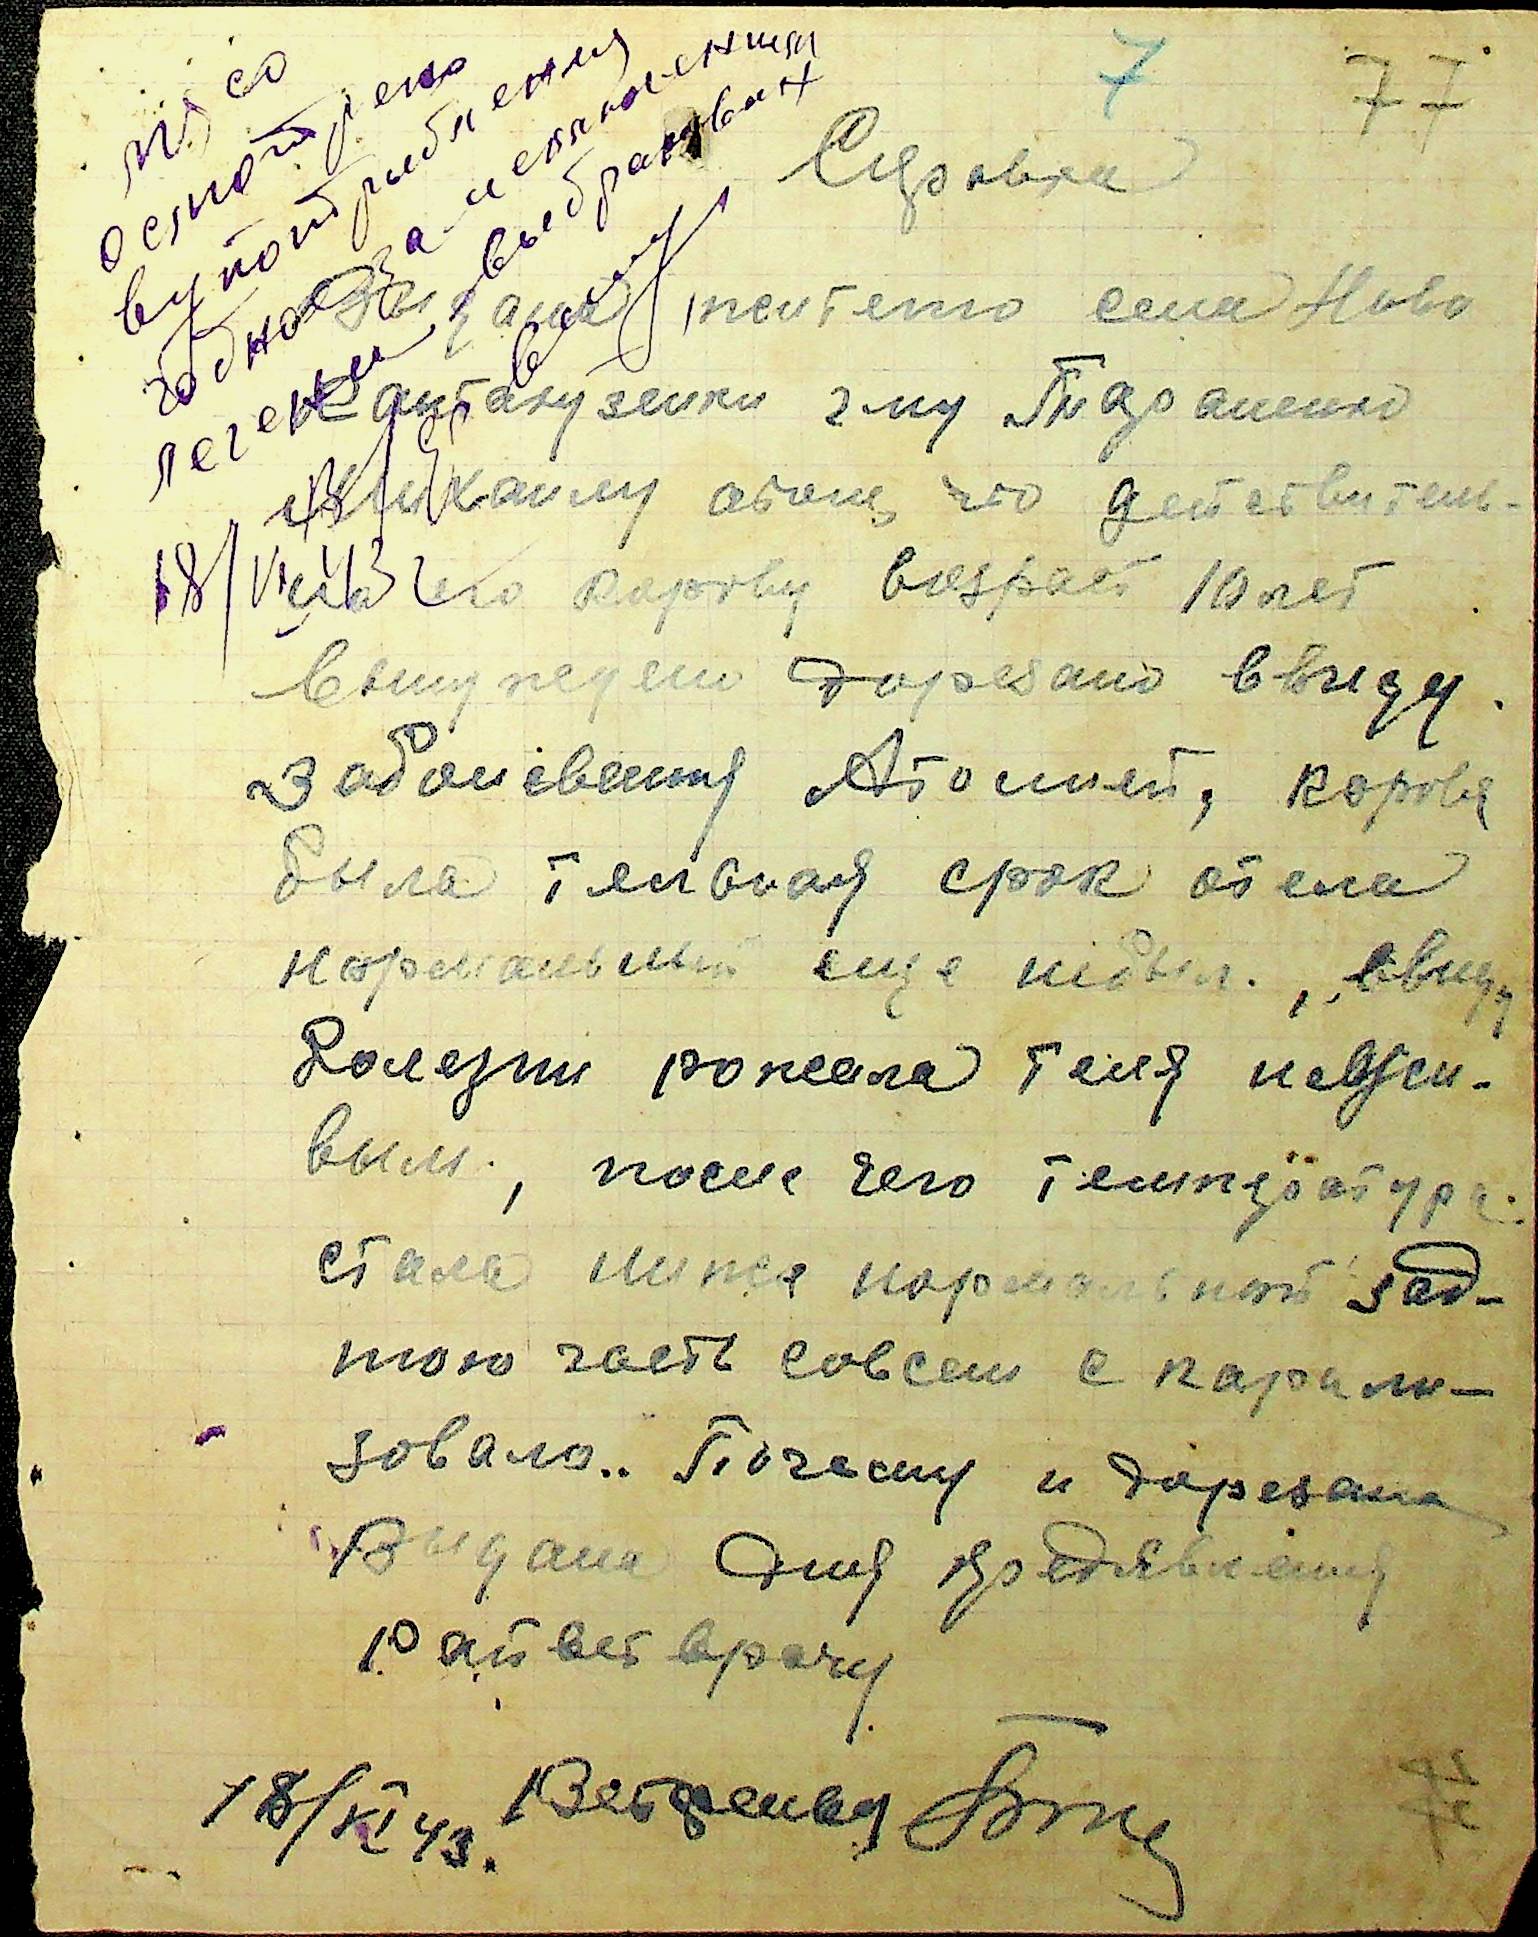 7 77
Мясо
осмотрено
в употребления
годное за исключением
легены, выбракован
18/VI 43 г
Справка
Выдана жителю села Ново
Кантакузенки г-му Тараненко
Михаилу отом, что действитель-
но его корову возраст 10 лет
вынуждено дорезано ввиду
заболевания Атонией, корова
была тельная срок отела
нормальный еще небыл., ввиду
болезни рожала теля нежи-
вым., после чего температура
стала ниже нормальной зад-
нюю часть совсем с парали-
зовало.. Почему и дорезана
Выдана для предявления
Райвет врачу
18/XI 43. Ветфельд